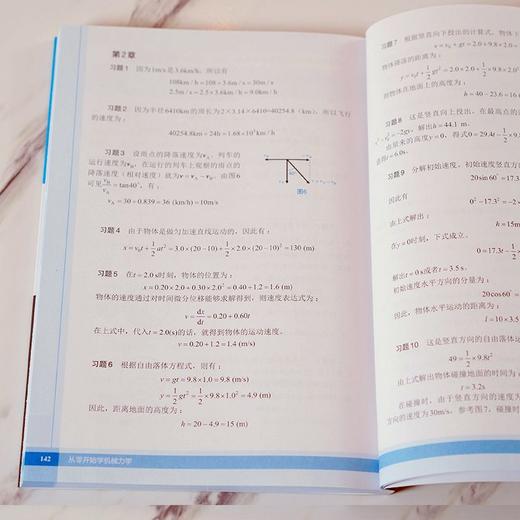 第2章
习题1 因为1m/s是3.6km/h,所以有
108km/h=108÷3.6m/s=30m/s
2.5m/s=2.5×3.6km/h=9.0km/h
习题2 因为半径6410km的周长为2×3.14×6410=40254.8(km),所以飞行
的速度为:
40254.8km÷24h=1.68×10³km/h
习题3 设雨点的降落速度为v_A,列车的
运行速度为v_B,在运行的列车上观察的雨点的
降落速度(相对速度)就为v=v_A−v_B,由图6
可见v_B/v_A=tan40°,有:
v_A=30÷0.839=36(km/h)=10m/s
图6
习题4 由于物体是做匀加速直线运动的,因此有:
x=v₀t+1/2at²=3.0×(20−10)+1/2×2.0×(20−10)²=130(m)
习题5 在t=2.0s时刻,物体的位置为:
x=0.20×2.0+0.30×2.0²=0.40+1.2=1.6(m)
物体的速度通过对时间微分位移能够求解得到,则速度表达式为:
v=dx/dt=0.20+0.60t
在上式中,代入t=2.0(s)的话,就得到物体的运动速度。
v=0.20+1.2=1.4(m/s)
习题6 根据自由落体方程式,则有:
v=gt=9.8×1.0=9.8(m/s)
y=1/2gt²=1/2×9.8×1.0²=4.9(m)
因此,距离地面的高度为:
h=20−4.9=15(m)
142 从零开始学机械力学
习题7 根据竖直向下投出的计算式,物体
v=v₀+gt=2.0+9.8×2.0
物体降落的距离为:
y=v₀t+1/2gt²=2.0×2.0+1/2×9.8×2.0²
则物体在地面上的高度为:
h=40−23.6=16
习题8 这是竖直向上投出,在最高点的
=−2gy,解出h=44.1m.
由原来的高度y=0,得式0=29.4t−1/2×9.8
t=6.0s.
习题9 分解初始速度,初始速度竖直方
20sin60°=17.3
因此有
0²−17.3²=−2
由上式解出:
h=15m
在y=0时刻,下式成立。
0=17.3t−1/2
解出t=0s或者t=3.5s.
初始速度水平方向的分量为:
20cos60°=
因此,物体水平运动的距离为:
l=10×3.5
习题10 这是竖直方向的自由落体运
49=1/2×9.8t²
由上式解出物体碰撞地面的时间为:
t=3.2s
在碰撞时,由于竖直方向的速度
方向的速度为30m/s,参考图7,碰撞时